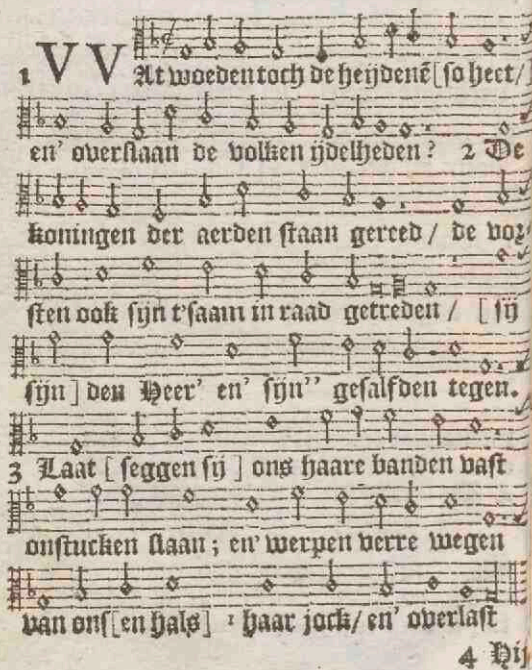 1 VVAt woeden toch de heijdenē [so heet/
en' overslaan de volken ijdelheden? 2 De
koningen der aerden staan gereed / de vor-
sten ook sijn t'saam in raad getreden / [ sij
sijn ] den Heer' en' sijn'' gesalfden tegen.
3 Laat [ seggen sij ] ons haare banden vast
onstucken slaan; en' werpen verre wegen
van ons[en hals] ı haar jock/ en' overlast
4 Hij